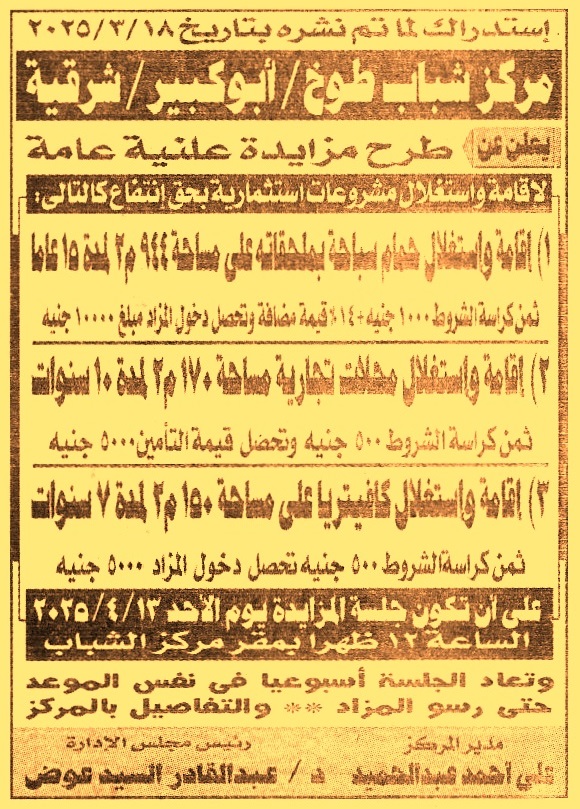 إستدراك لما تم نشره بتاريخ ٢٠٢٥/٣/١٨
مركز شباب طوخ / أبوكبير / شرقية
يعلن عن طرح مزايدة علنية عامة
لاقامة واستغلال مشروعات استثمارية بحق إنتفاع كالتالى:
١) إقامة واستغلال حمام سباحة بملحقاته على مساحة ٩٤٤ م٢ لمدة ١٥ عاما
ثمن كراسة الشروط ١٠٠٠ جنيه + ١٤٪ قيمة مضافة وتحصل دخول المزاد مبلغ ١٠٠٠٠ جنيه
٢) إقامة واستغلال محلات تجارية مساحة ١٧٠ م٢ لمدة ١٠ سنوات
ثمن كراسة الشروط ٥٠٠ جنيه وتحصل قيمة التأمين ٥٠٠٠ جنيه
٣) إقامة واستغلال كافيتريا على مساحة ١٥٠ م٢ لمدة ٧ سنوات
ثمن كراسة الشروط ٥٠٠ جنيه تحصل دخول المزاد ٥٠٠٠ جنيه
على أن تكون جلسة المزايدة يوم الأحد ٢٠٢٥/٤/١٣
الساعة ١٢ ظهرا بمقر مركز الشباب
وتعاد الجلسة أسبوعيا فى نفس الموعد
حتى رسو المزاد ** والتفاصيل بالمركز
مدير المركز رئيس مجلس الإدارة
على أحمد عبدالحميد د / عبدالقادر السيد عوض